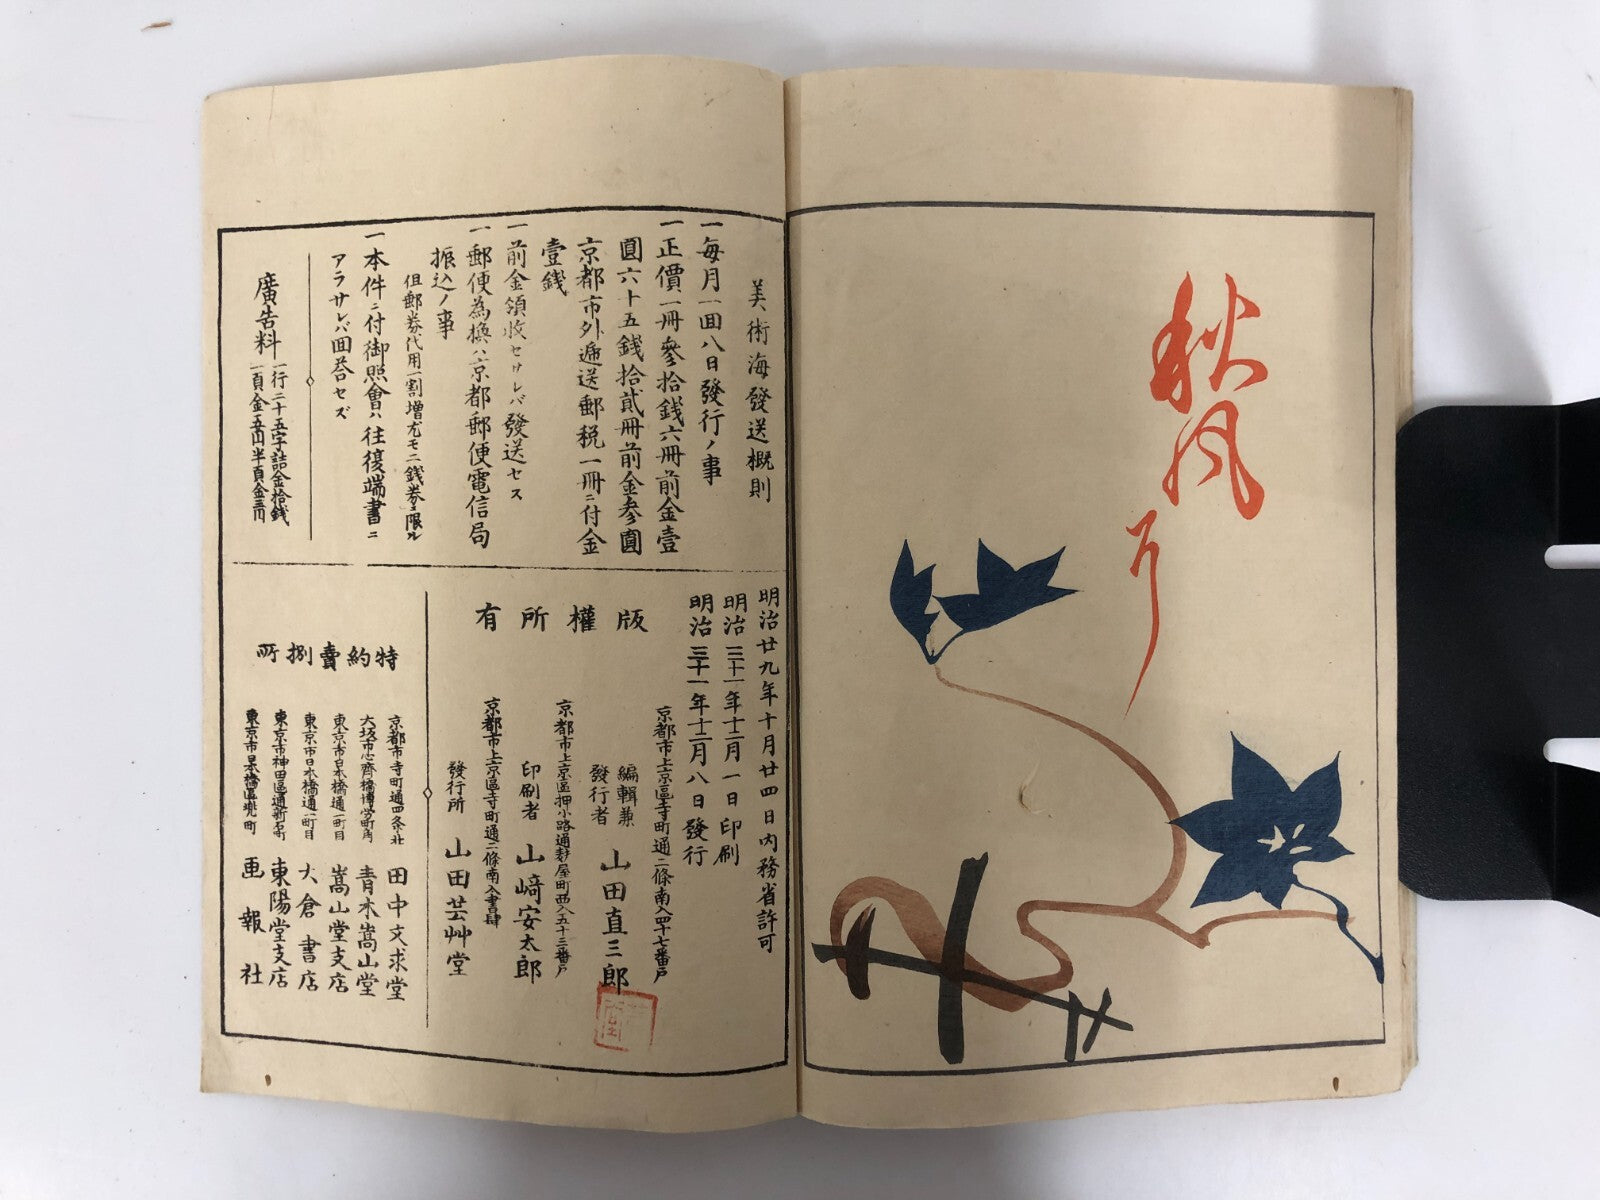 秋風
美術海發送概則
一毎月一回八日發行ノ事
一正價一冊參拾銭六冊前金壹
圓六十五銭拾貳冊前金參圓
京都市外遞送郵税一冊ニ付金
壹銭
一前金領收セサレバ發送セス
一郵便為換ハ京都郵便電信局
振込ノ事
但郵券代用一割増尤モ二銭券ニ限ル
一本件ニ付御照會ハ往復端書ニ
アラサレバ回荅セズ
廣告料
一行二十五字詰金拾銭
一頁金五円半頁金三円
明治廿九年十月廿四日内務省許可
明治三十一年十二月一日印刷
明治三十一年十二月八日發行
版權所有
京都市上京區寺町通二條南入四十七番戸
編輯兼
發行者 山田直三郎
京都市上京區押小路通麩屋町西入五十三番戸
印刷者 山﨑安太郎
京都市上京區寺町通二條南入書肆
發行所 山田芸艸堂
特約賣捌所
京都市寺町通四条北 田中文求堂
大坂市心齊橋博労町角 青木嵩山堂
東京市日本橋通一町目 嵩山堂支店
東京市日本橋通一町目 大倉書店
東京市神田區通新石町 東陽堂支店
東京市日本橋區兜町 画報社